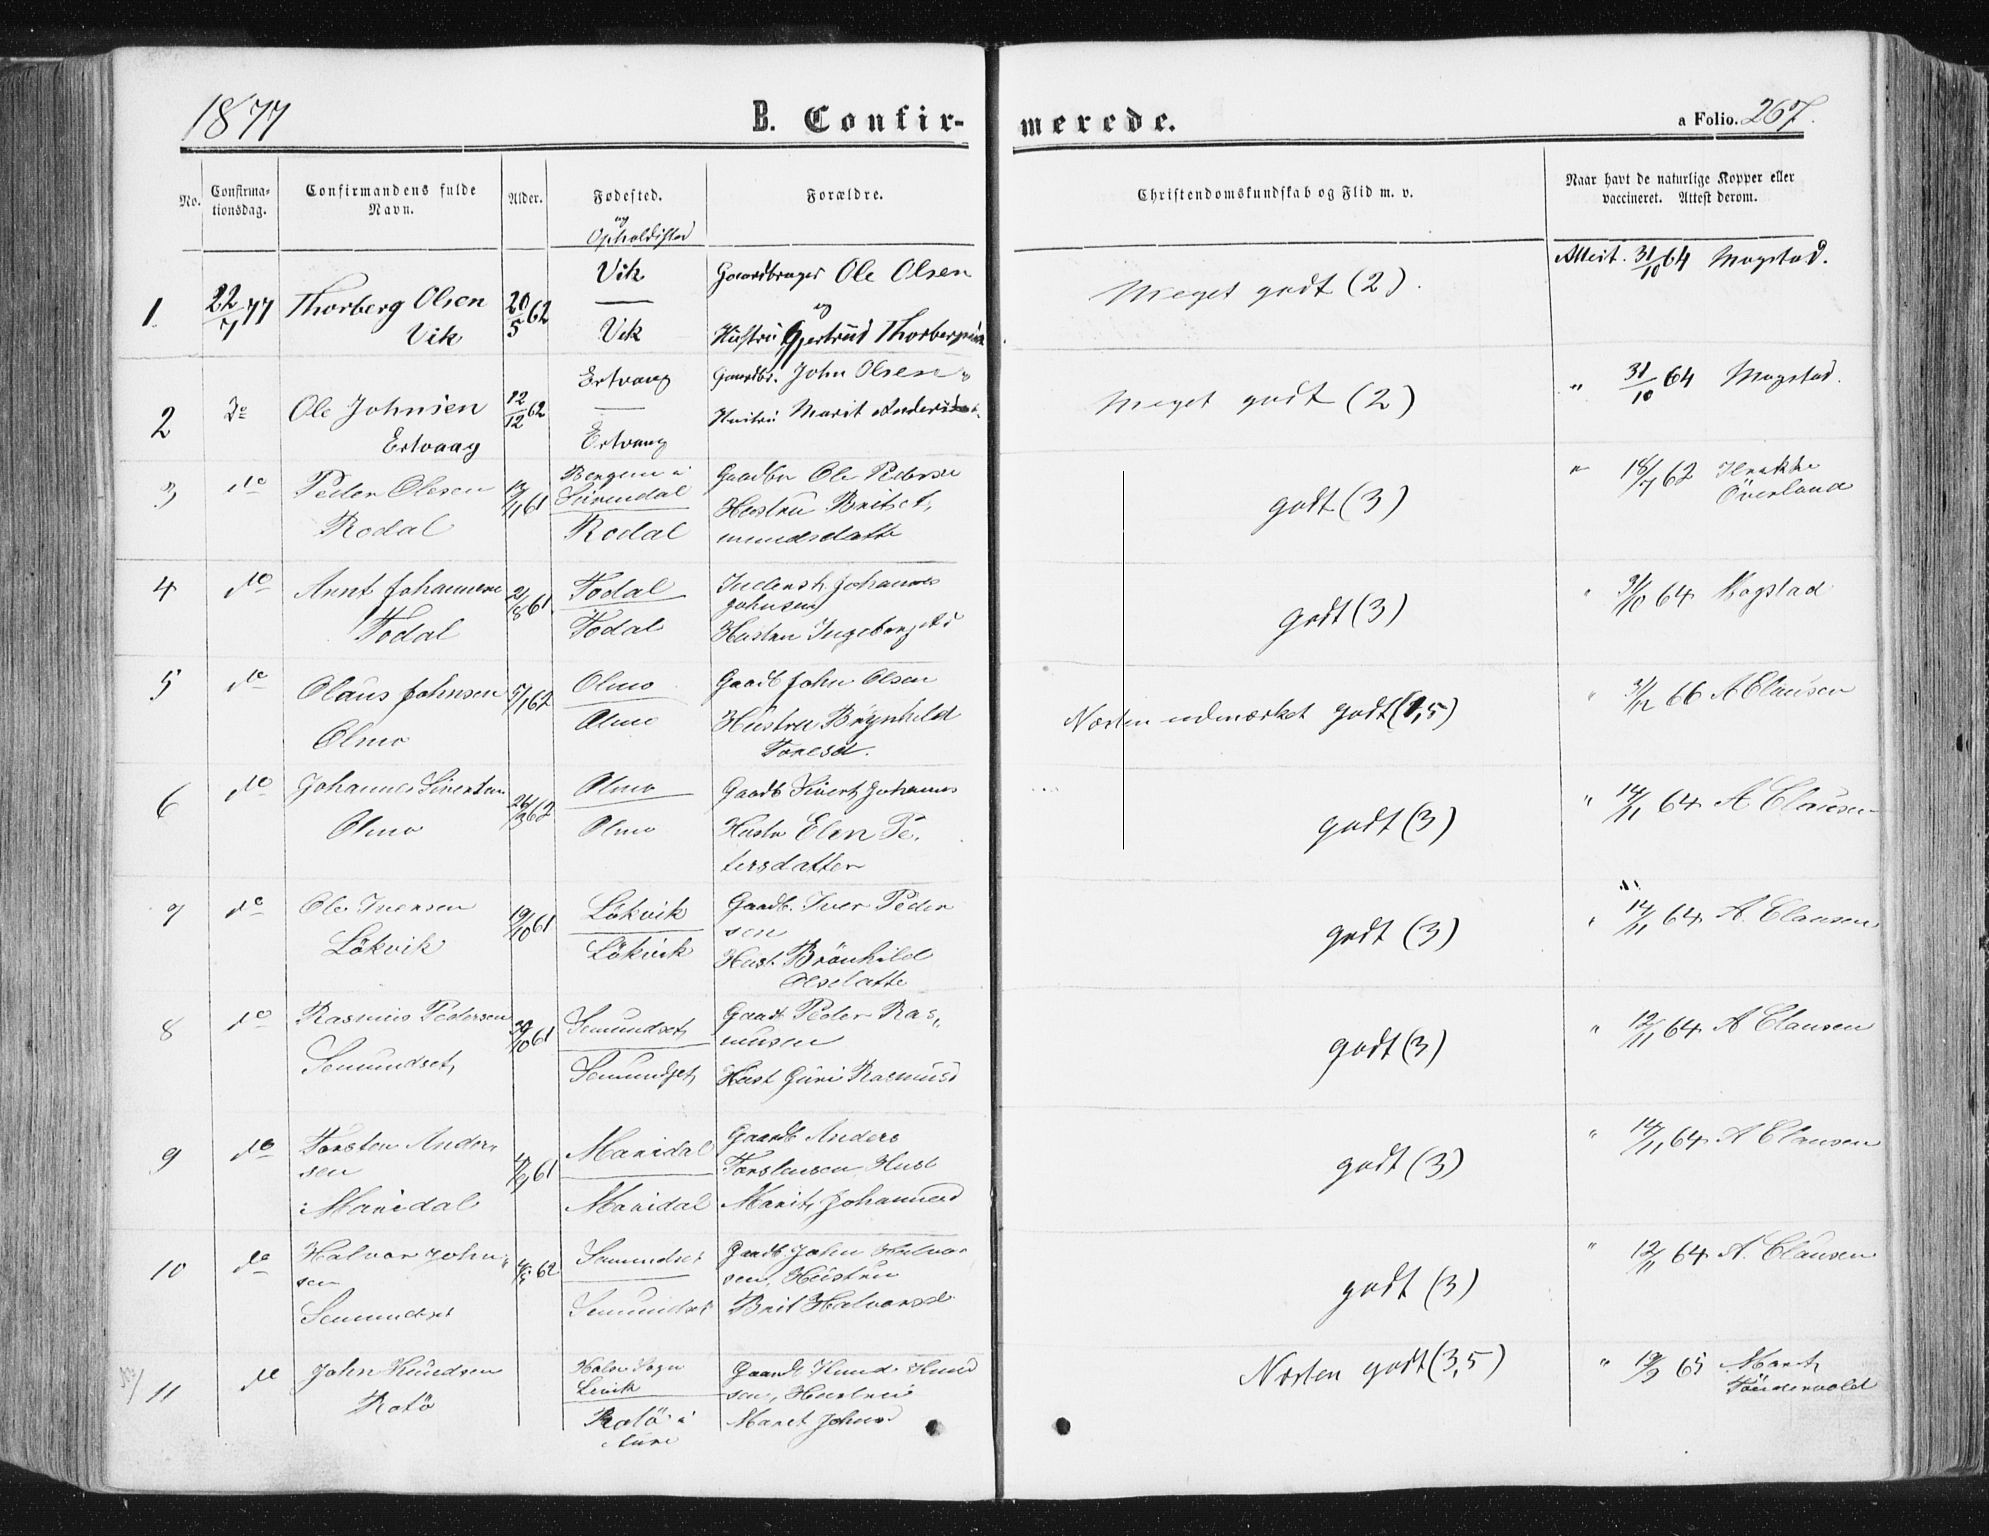 1877
B. Confir-
merede.
a Folio. 267.
No.
Confirma-
tionsdag.
Confirmandens fulde
Navn.
Alder.
Fødested.
og
Opholdssted
Forældre.
Christendomskundskab og Flid m. v.
Naar havt de naturlige Kopper eller
vaccineret. Attest derom.
1.
22/7 77
Thorberg Olsen
Vik
20/5 62
Vik
Vik
Gaardbruger Ole Olsen
og
Hustru Gjertrud
Meget godt (2).
Attest. 31/10 64 Mogstad.
2
Do
Ole Johnsen
Ertvaag
12/12 62
Ertvaag
Ertvaag
Gaardbr. John Olsen
Hustru Marit
Meget godt (2)
" 31/10 64 Mogstad.
3
do
Peder Olesen
Rodal
61
Surendal
Rodal
Gaardbr Ole Pederse
Hustru Brit
mundsdatte
godt (3)
" 18/7 62
Överland
4
do
Arnt Johannesen
Todal
61
Todal
Todal
Inderst Johannes
Johnsen
Hustru Ingeborg
godt (3)
" 31/10 64 Mogstad
5
do
Olaus Johnsen
Olmo
62
Olmo
Olmo
Gaardb John Olsen
Hustru Brynhild
Toresd.
Næsten udmærket godt (1,5)
" 66 A Clausen
6
do
Johannes Sivertsen
Olmo
62
Olmo
Olmo
Gaardb Sivert Johannes
Hustr Elen Pe-
tersdatter
godt (3)
" 14/11 64 A Clausen
7
do
Ole Iversen
Lökvik
19/10 61
Lökvik
Lökvik
Gaardb. Iver Peder
sen
Hust. Brönhild
Olsdatte
godt (3)
" 14/11 64 A. Clausen
8
do
Rasmus Pedersen
Semundset
61
Semundset
Semundset
Gaardb Peder Ras-
musen
Hust Guri Rasmusd
godt (3)
" 12/11 64 A Clausen
9
do
Torsten Ander-
sen
Maridal
61
Maridal
Maridal
Gaardb Anders
Torstensen Hust
Marit Johannesd
godt (3)
" 14/11 64 A Clausen
10
do
Halvor John-
sen
Semundset
62
Semundset
Semundset
Gaardb. John Halvor
sen, Hustru
Brit Halvorsd
godt (3)
" 12/11 64 A. Clausen
11
do
John Knudsen
Rotö
Halse Sogn
Rotö i
Aure
Gaardb Knud Knud
sen, Hustru
Maret Johnsd
Næsten godt (3,5)
" 65 Maret
Töndervold